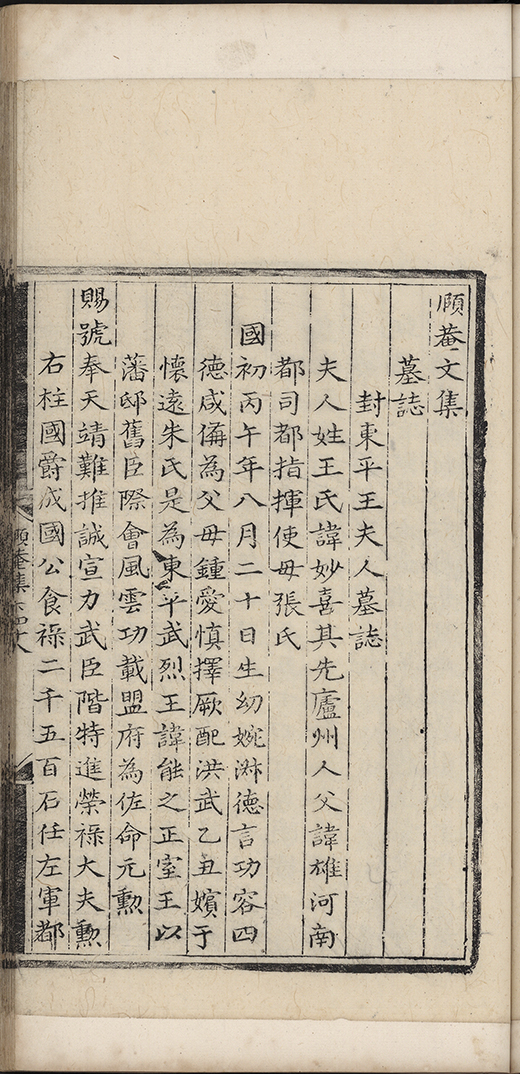 頋菴文集
墓誌
封東平王夫人墓誌
夫人姓王氏諱妙喜其先廬州人父諱雄河南
都司都指揮使母張氏
國初丙午年八月二十日生幼婉淑德言功容四
德咸偹為父母鍾愛慎擇厥配洪武乙丑嬪于
懷遠朱氏是為東平武烈王諱能之正室王以
藩邸舊臣際會風雲功載盟府為佐命元勲
賜號奉天靖難推誠宣力武臣階特進榮祿大夫勲
右柱國爵成國公食祿二千五百石任左軍都
頋菴集